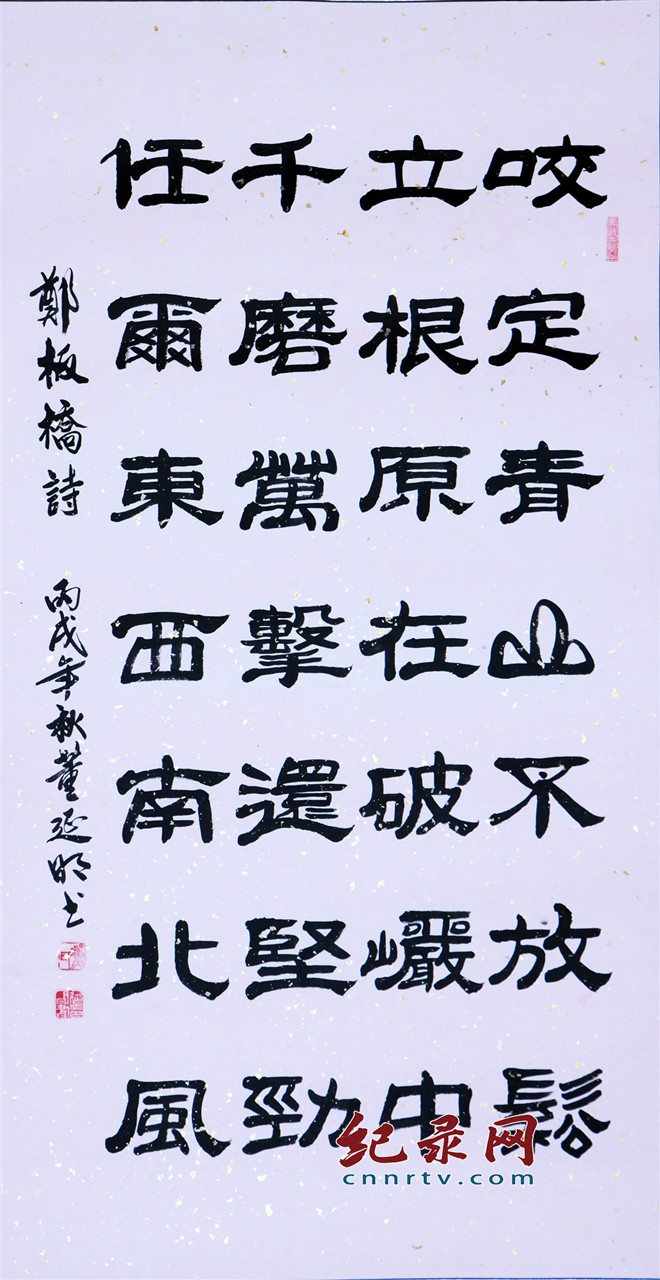 咬定青山不放鬆
立根原在破巗中
千磨萬擊還堅勁
任爾東西南北風
鄭板橋詩 丙戌年秋董延明書
纪录网
cnnrtv.com